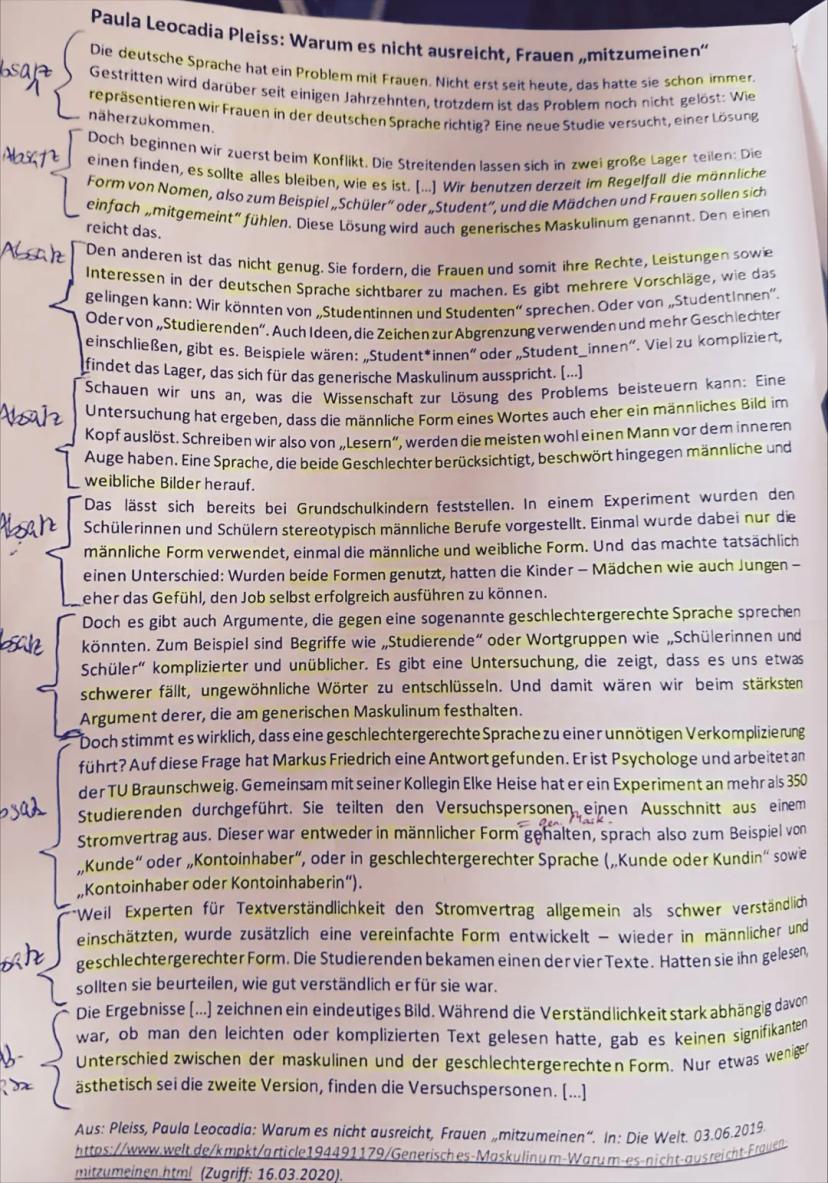 Paula Leocadia Pleiss: Warum es nicht ausreicht, Frauen „mitzumeinen“
Absatz
Die deutsche Sprache hat ein Problem mit Frauen. Nicht erst seit heute, das hatte sie schon immer.
Gestritten wird darüber seit einigen Jahrzehnten, trotzdem ist das Problem noch nicht gelöst: Wie
repräsentieren wir Frauen in der deutschen Sprache richtig? Eine neue Studie versucht, einer Lösung
näherzukommen.
Absatz
Doch beginnen wir zuerst beim Konflikt. Die Streitenden lassen sich in zwei große Lager teilen: Die
einen finden, es sollte alles bleiben, wie es ist. [...] Wir benutzen derzeit im Regelfall die männliche
Form von Nomen, also zum Beispiel „Schüler“ oder „Student“, und die Mädchen und Frauen sollen sich
einfach „mitgemeint“ fühlen. Diese Lösung wird auch generisches Maskulinum genannt. Den einen
reicht das.
Absatz
Den anderen ist das nicht genug. Sie fordern, die Frauen und somit ihre Rechte, Leistungen sowie
Interessen in der deutschen Sprache sichtbarer zu machen. Es gibt mehrere Vorschläge, wie das
gelingen kann: Wir könnten von „Studentinnen und Studenten“ sprechen. Oder von „StudentInnen“.
Oder von „Studierenden“. Auch Ideen, die Zeichen zur Abgrenzung verwenden und mehr Geschlechter
einschließen, gibt es. Beispiele wären: „Student*innen“ oder „Student_innen“. Viel zu kompliziert,
findet das Lager, das sich für das generische Maskulinum ausspricht. [...]
Absatz
Schauen wir uns an, was die Wissenschaft zur Lösung des Problems beisteuern kann: Eine
Untersuchung hat ergeben, dass die männliche Form eines Wortes auch eher ein männliches Bild im
Kopf auslöst. Schreiben wir also von „Lesern“, werden die meisten wohl einen Mann vor dem inneren
Auge haben. Eine Sprache, die beide Geschlechter berücksichtigt, beschwört hingegen männliche und
weibliche Bilder herauf.
Absatz
Das lässt sich bereits bei Grundschulkindern feststellen. In einem Experiment wurden den
Schülerinnen und Schülern stereotypisch männliche Berufe vorgestellt. Einmal wurde dabei nur die
männliche Form verwendet, einmal die männliche und weibliche Form. Und das machte tatsächlich
einen Unterschied: Wurden beide Formen genutzt, hatten die Kinder – Mädchen wie auch Jungen –
eher das Gefühl, den Job selbst erfolgreich ausführen zu können.
Absatz
Doch es gibt auch Argumente, die gegen eine sogenannte geschlechtergerechte Sprache sprechen
könnten. Zum Beispiel sind Begriffe wie „Studierende“ oder Wortgruppen wie „Schülerinnen und
Schüler“ komplizierter und unüblicher. Es gibt eine Untersuchung, die zeigt, dass es uns etwas
schwerer fällt, ungewöhnliche Wörter zu entschlüsseln. Und damit wären wir beim stärksten
Argument derer, die am generischen Maskulinum festhalten.
Absatz
Doch stimmt es wirklich, dass eine geschlechtergerechte Sprache zu einer unnötigen Verkomplizierung
führt? Auf diese Frage hat Markus Friedrich eine Antwort gefunden. Er ist Psychologe und arbeitet an
der TU Braunschweig. Gemeinsam mit seiner Kollegin Elke Heise hat er ein Experiment an mehr als 350
Studierenden durchgeführt. Sie teilten den Versuchspersonen einen Ausschnitt aus einem
= gen. Mask.
Stromvertrag aus. Dieser war entweder in männlicher Form gehalten, sprach also zum Beispiel von
„Kunde“ oder „Kontoinhaber“, oder in geschlechtergerechter Sprache („Kunde oder Kundin“ sowie
„Kontoinhaber oder Kontoinhaberin“).
Absatz
Weil Experten für Textverständlichkeit den Stromvertrag allgemein als schwer verständlich
einschätzten, wurde zusätzlich eine vereinfachte Form entwickelt – wieder in männlicher und
geschlechtergerechter Form. Die Studierenden bekamen einen der vier Texte. Hatten sie ihn gelesen,
sollten sie beurteilen, wie gut verständlich er für sie war.
Ab-
Die Ergebnisse [...] zeichnen ein eindeutiges Bild. Während die Verständlichkeit stark abhängig davon
war, ob man den leichten oder komplizierten Text gelesen hatte, gab es keinen signifikanten
Unterschied zwischen der maskulinen und der geschlechtergerechten Form. Nur etwas weniger
ästhetisch sei die zweite Version, finden die Versuchspersonen. [...]
Aus: Pleiss, Paula Leocadia: Warum es nicht ausreicht, Frauen „mitzumeinen“. In: Die Welt. 03.06.2019.
https://www.welt.de/kmpkt/article194491179/Generisches-Maskulinum-Warum-es-nicht-ausreicht-Frauen-
mitzumeinen.html (Zugriff: 16.03.2020).